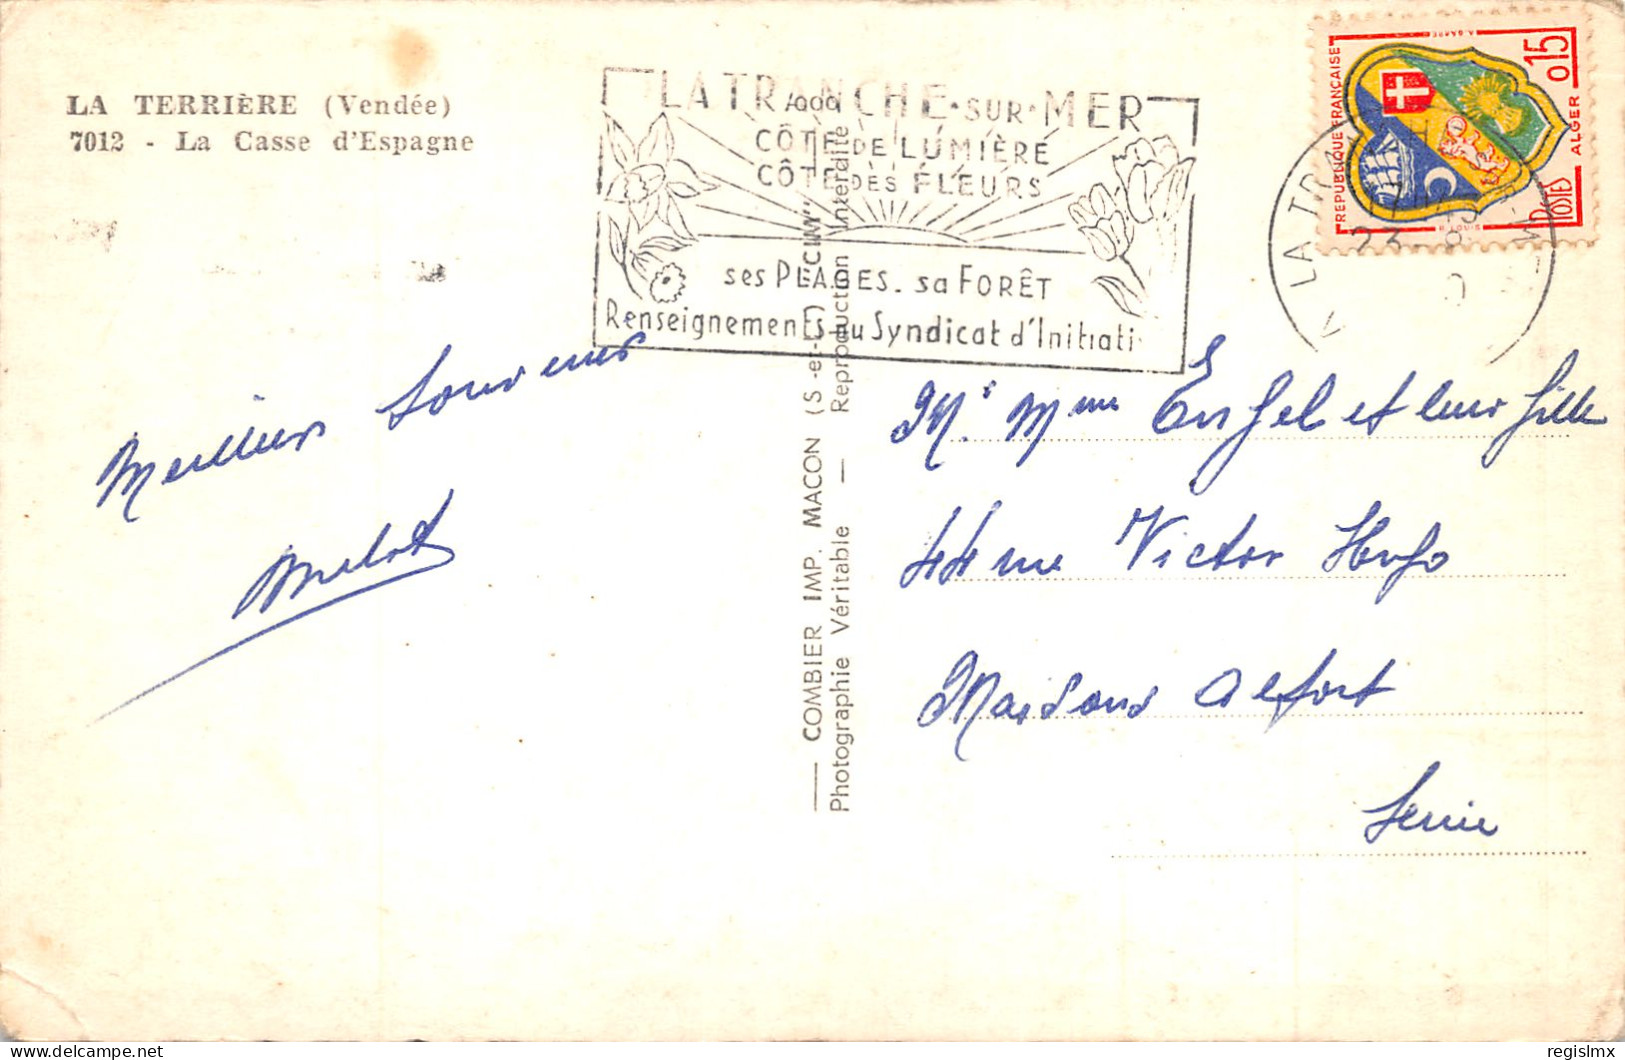 LA TERRIÈRE (Vendée)
7012 - La Casse d'Espagne
LA TRANCHE-SUR-MER
CÔTE DE LUMIÈRE
CÔTE DES FLEURS
ses PLAGES. sa FORÊT
Renseignements au Syndicat d'Initiati
RÉPUBLIQUE FRANÇAISE
0,15
ALGER
POSTES
LA TRA
23 - 8
Meilleurs souvenirs
COMBIER IMP. MACON (S.-et-L.) "CIM"
Photographie Véritable — Reproduction Interdite
Mr Mme Engel et leur fille
44 rue Victor Hugo
Maisons Alfort
Seine
regislmx